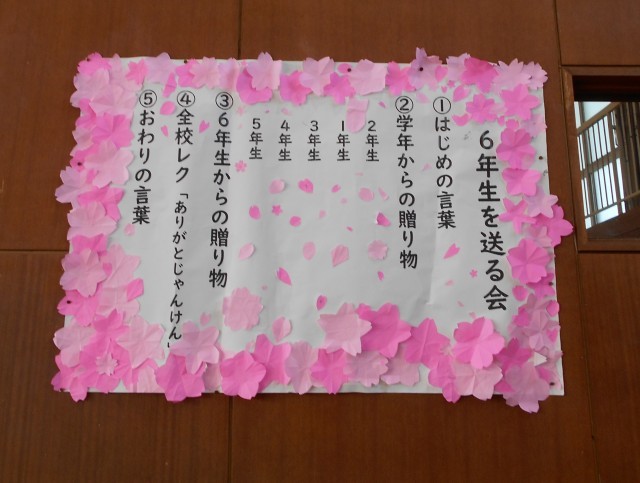 6年生を送る会
①はじめの言葉
②学年からの贈り物
2年生
1年生
3年生
4年生
5年生
③6年生からの贈り物
④全校レク「ありがとじゃんけん」
⑤おわりの言葉